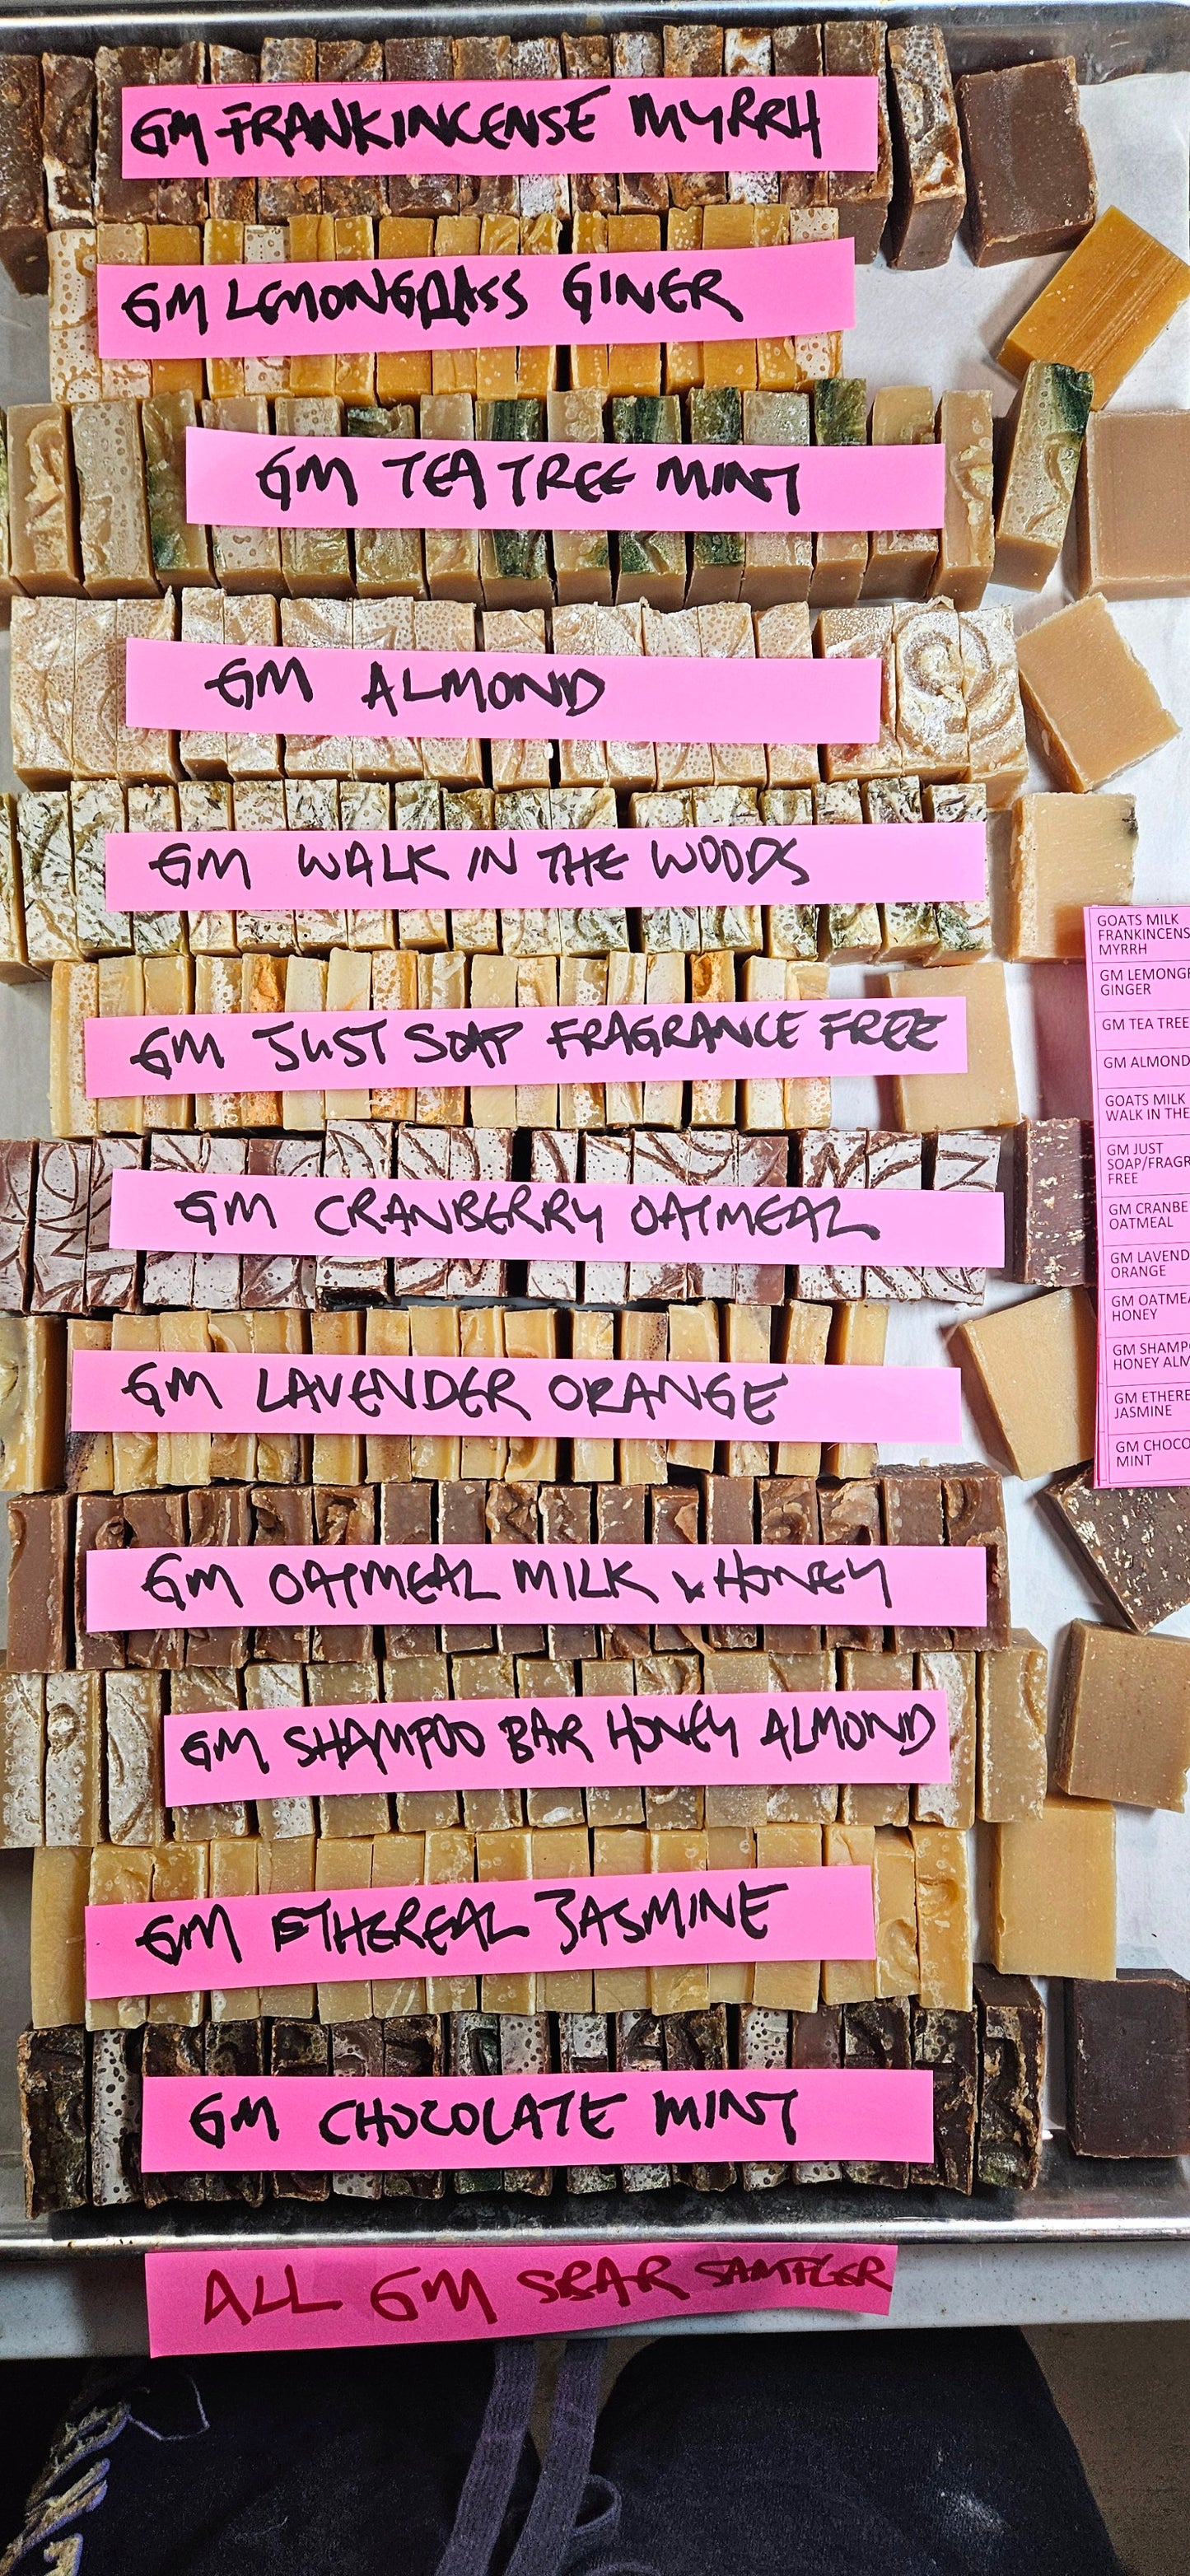 GM FRANKINCENSE MYRRH
GM LEMONGRASS GINER
GM TEA TREE MINT
GM ALMOND
GM WALK IN THE WOODS
GM JUST SOAP FRAGRANCE FREE
GM CRANBERRY OATMEAL
GM LAVENDER ORANGE
GM OATMEAL MILK & HONEY
GM SHAMPOO BAR HONEY ALMOND
GM ETHEREAL JASMINE
GM CHOCOLATE MINT
ALL GM SBAR SAMPLER
GOATS MILK
FRANKINCENS
MYRRH
GM LEMONG
GINGER
GM TEA TREE
GM ALMOND
GOATS MILK
WALK IN THE
GM JUST
SOAP/FRAGR
FREE
GM CRANBE
OATMEAL
GM LAVEND
ORANGE
GM OATMEA
HONEY
GM SHAMP
HONEY ALM
GM ETHERE
JASMINE
GM CHOCO
MINT